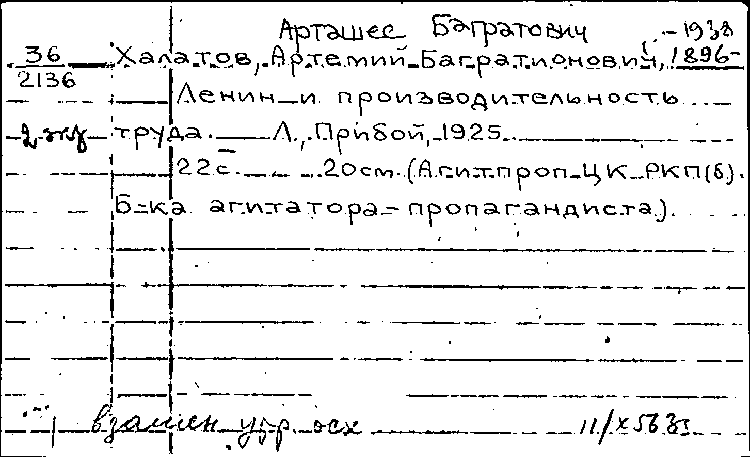 Арташес Багратович - 1938
36 Халатов, Артемий Багратионович, 1896-
2136
Ленин и производительность
2 экз труда. — Л., Прибой, 1925
22с. 20см. (Агитпроп ЦК РКП(б).
Б-ка агитатора-пропагандиста).
взамен утр. 11/X